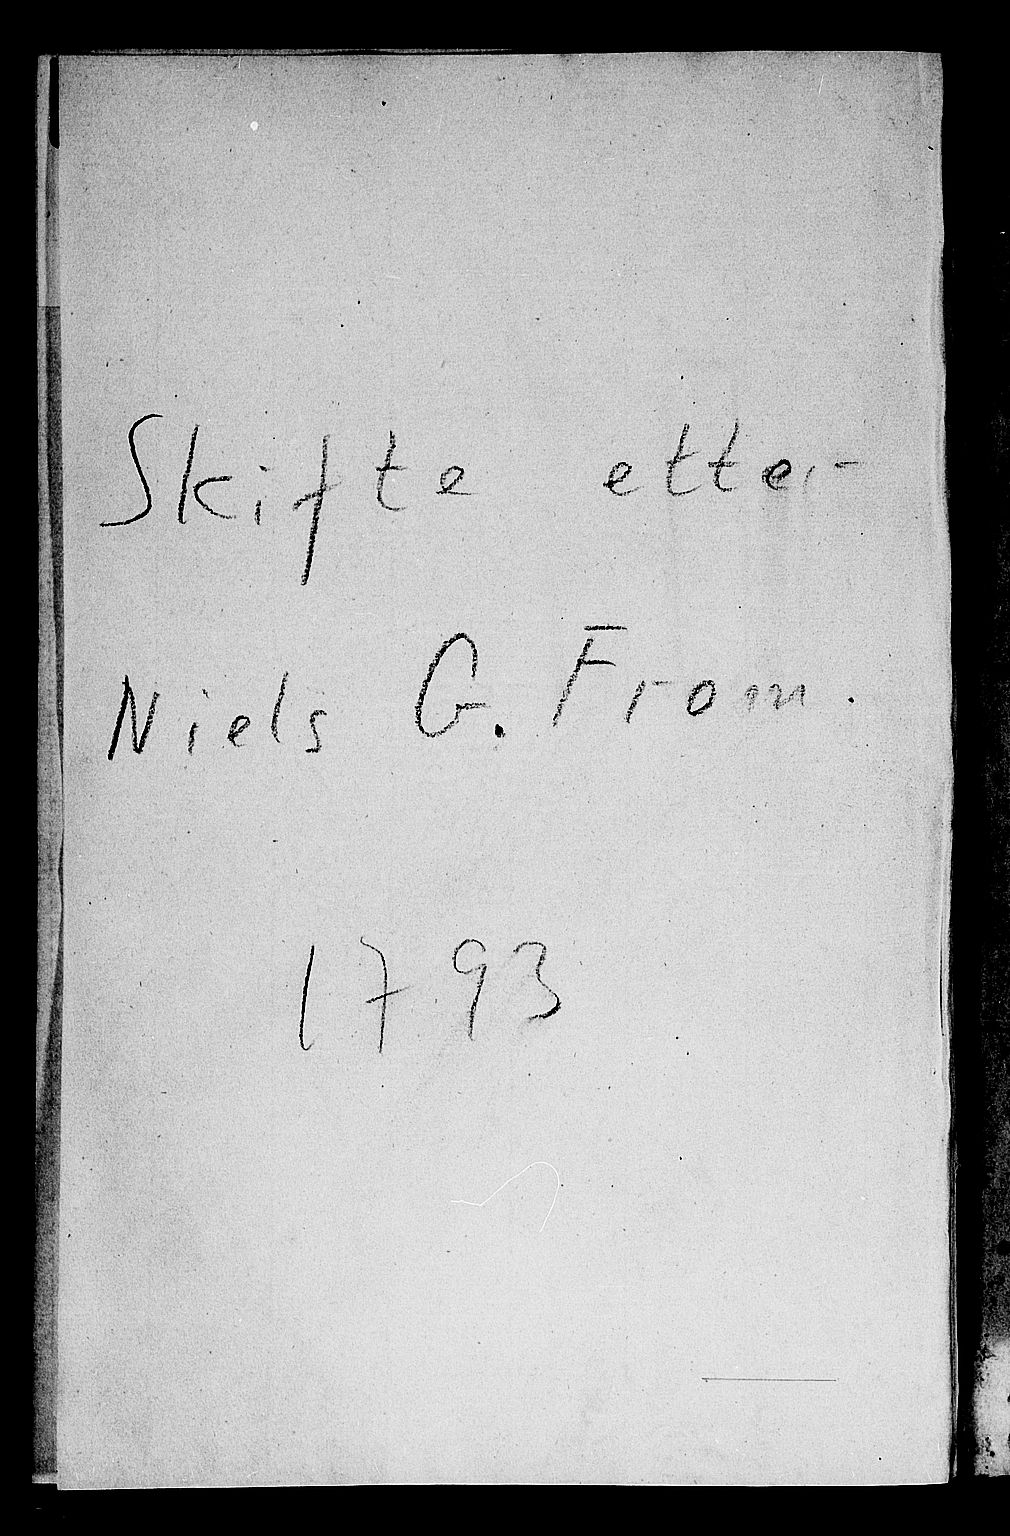 Skifte etter
Niels G. From.
1793